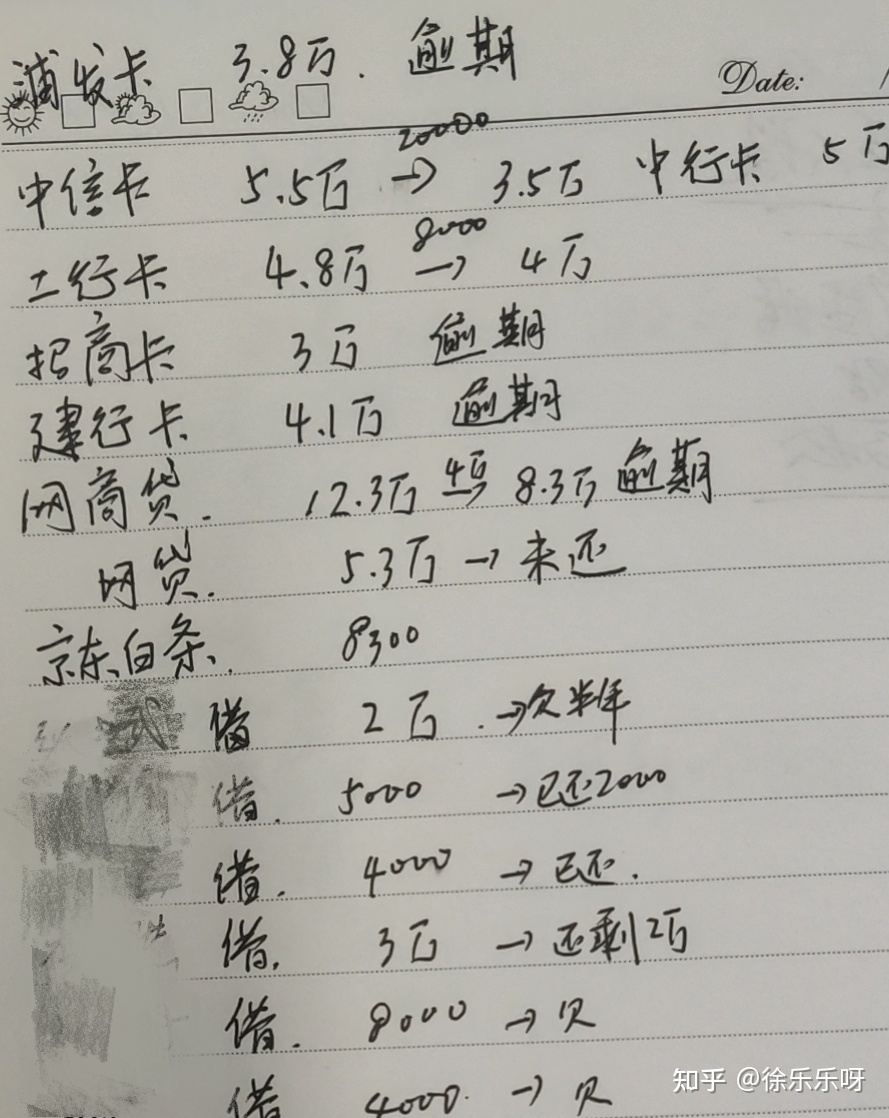 浦发卡 3.8万. 逾期
Date:
20000
中信卡 5.5万 → 3.5万 中行卡 5万
8000
工行卡 4.8万 → 4万
招商卡 3万 逾期
建行卡 4.1万 逾期
网商贷. 12.3万 4万 → 8.3万 逾期
网贷. 5.3万 → 未还
京东白条. 8300
借 2万 . → 欠半年
借. 5000 → 已还2000
借. 4000 → 已还.
借. 3万 → 还剩2万
借. 8000 → 欠
借 4000. → 欠
知乎 @徐乐乐呀